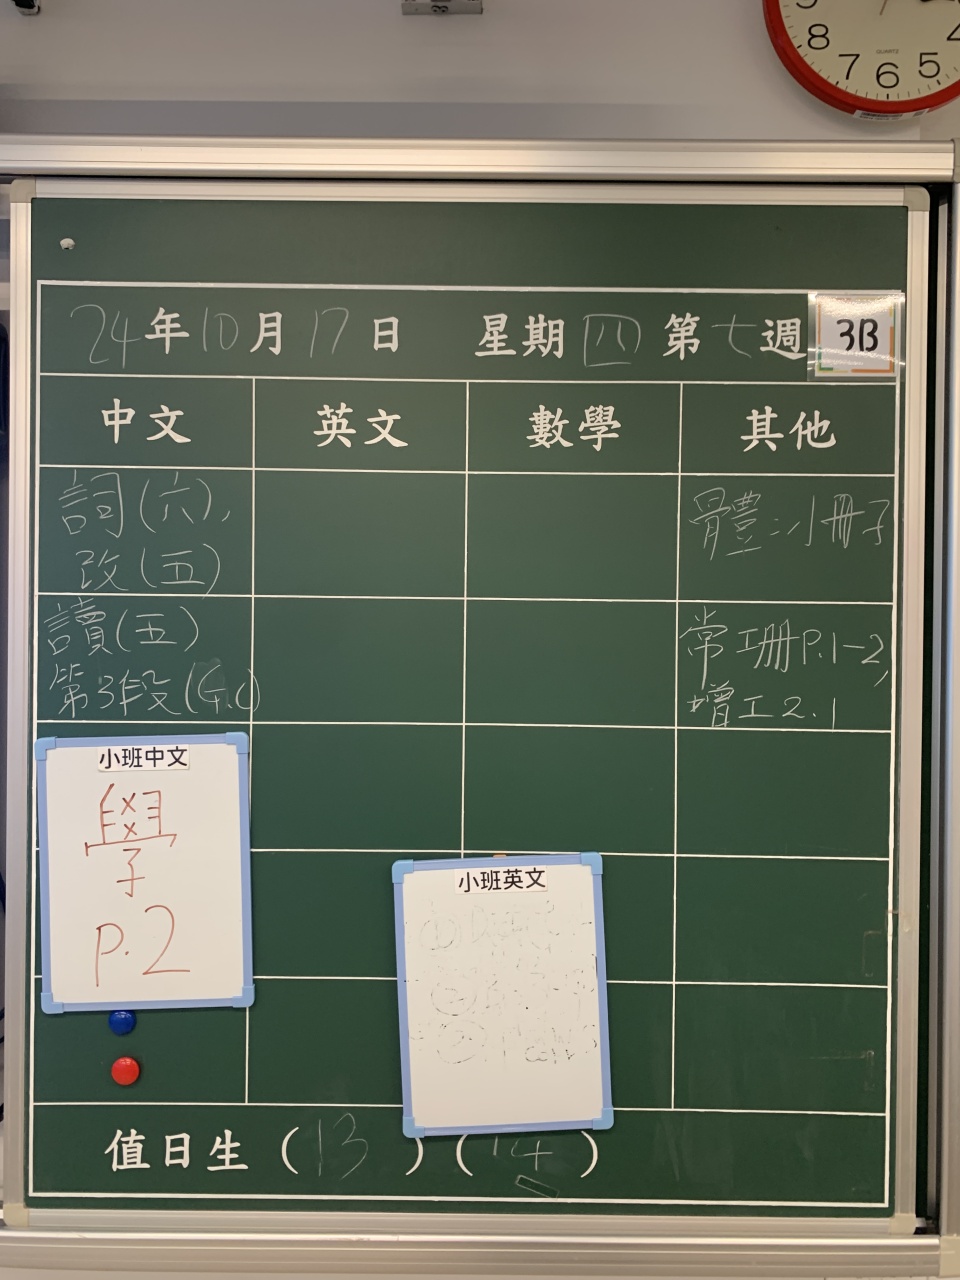 8 7 6 5 4
QUARTZ
24年10月17日 星期四 第七週 3B
中文 英文 數學 其他
詞(六),
改(五)
體:小冊子
讀(五)
第3段(G.C)
常工冊P.1-2,
增工2.1
小班中文
學
P.2
小班英文
值日生 (13) (14)